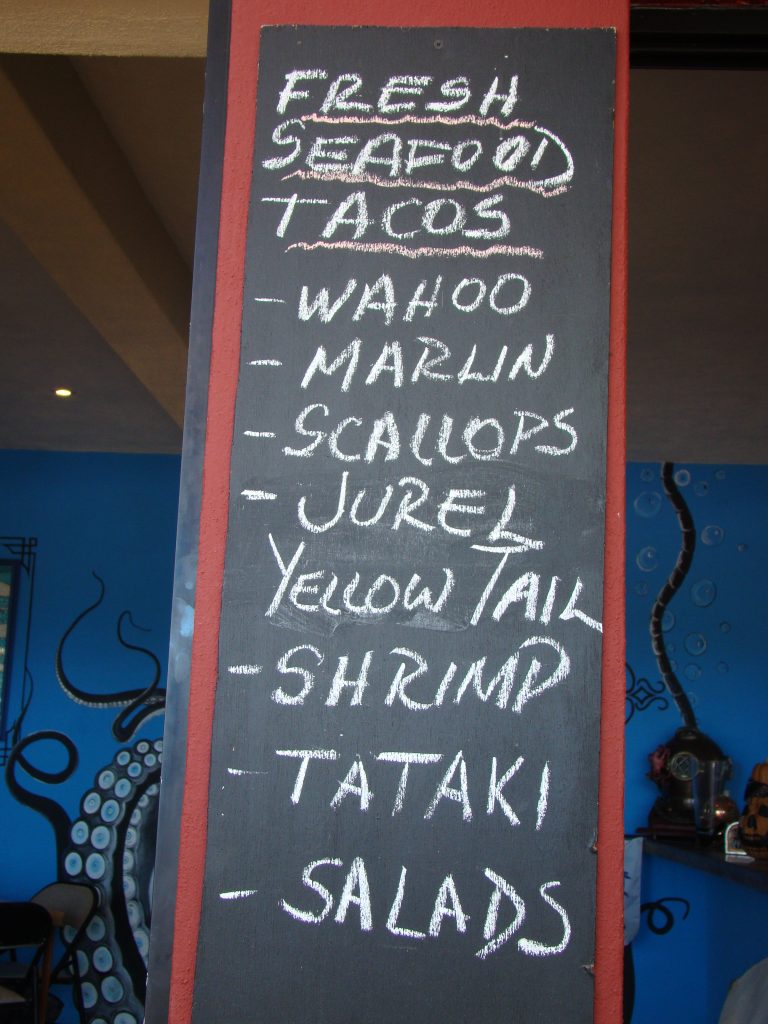 FRESH
SEAFOOD
TACOS
- WAHOO
- MARLIN
- SCALLOPS
- JUREL
YELLOW TAIL
- SHRIMP
- TATAKI
- SALADS